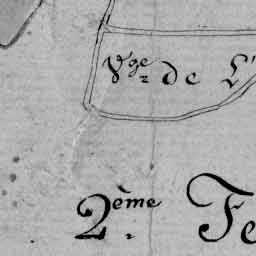 Vge de L'
2ème Fe